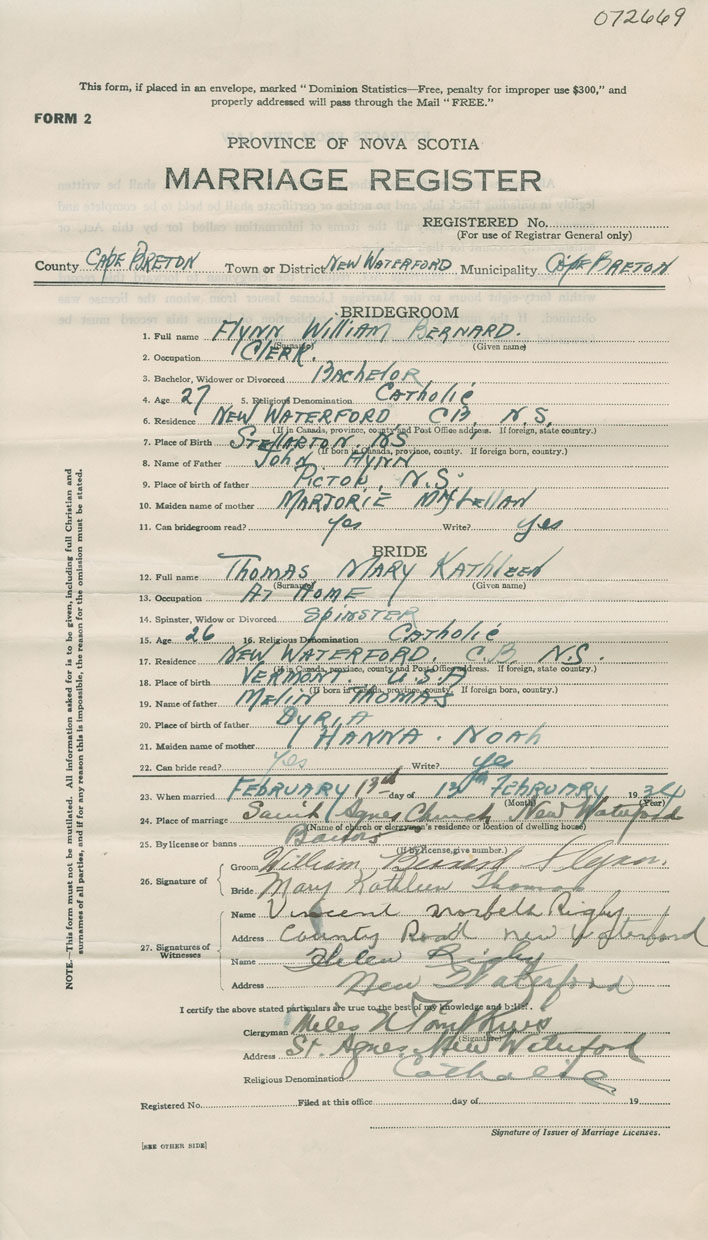 072669
This form, if placed in an envelope, marked "Dominion Statistics—Free, penalty for improper use $300," and
properly addressed will pass through the Mail "FREE."
FORM 2
PROVINCE OF NOVA SCOTIA
MARRIAGE REGISTER
REGISTERED No.
(For use of Registrar General only)
County CAPE BRETON Town or District NEW WATERFORD Municipality CAPE BRETON
BRIDEGROOM
1. Full name FLYNN WILLIAM BERNARD.
(Surname) (Given name)
2. Occupation CLERK.
3. Bachelor, Widower or Divorced BACHELOR
4. Age 27 5. Religious Denomination CATHOLIC
6. Residence NEW WATERFORD CB, N.S.
(If in Canada, province, county and Post Office address. If foreign, state country.)
7. Place of Birth STELLARTON. NS
(If born in Canada, province, county. If foreign born, country.)
8. Name of Father John FLYNN
9. Place of birth of father PICTOU, N.S.
10. Maiden name of mother MARJORIE McLELLAN
11. Can bridegroom read? yes Write? yes
BRIDE
12. Full name THOMAS MARY KATHLEEN
(Surname) (Given name)
13. Occupation AT HOME
14. Spinster, Widow or Divorced SPINSTER
15. Age 26 16. Religious Denomination CATHOLIC
17. Residence NEW WATERFORD, C.B. N.S.
(If in Canada, province, county and Post Office address. If foreign, state country.)
18. Place of birth VERMONT. U.S.A
(If born in Canada, province, county. If foreign born, country.)
19. Name of father MELIN THOMAS
20. Place of birth of father SYRIA
21. Maiden name of mother HANNA. NOAH
22. Can bride read? yes Write? yes
23. When married FEBRUARY 13th day of 13th FEBRUARY 1934
(Month) (Year)
24. Place of marriage Saint Agnes Church New Waterford
(Name of church or clergyman's residence or location of dwelling house)
25. By license or banns Banns
(If by license, give number.)
26. Signature of
Groom William Bernard Flynn.
Bride Mary Kathleen Thomas
27. Signatures of Witnesses
Name Vincent Rigby
Address County Road New Waterford
Name Helen Rigby
Address New Waterford
I certify the above stated particulars are true to the best of my knowledge and belief.
Clergyman Miles N Tompkins
(Signature)
Address St. Agnes, New Waterford
Religious Denomination Catholic
Registered No. Filed at this office day of 19
Signature of Issuer of Marriage Licenses.
[SEE OTHER SIDE]
NOTE.—This form must not be mutilated. All information asked for is to be given, including full Christian and
surnames of all parties, and if for any reason this is impossible, the reason for the omission must be stated.